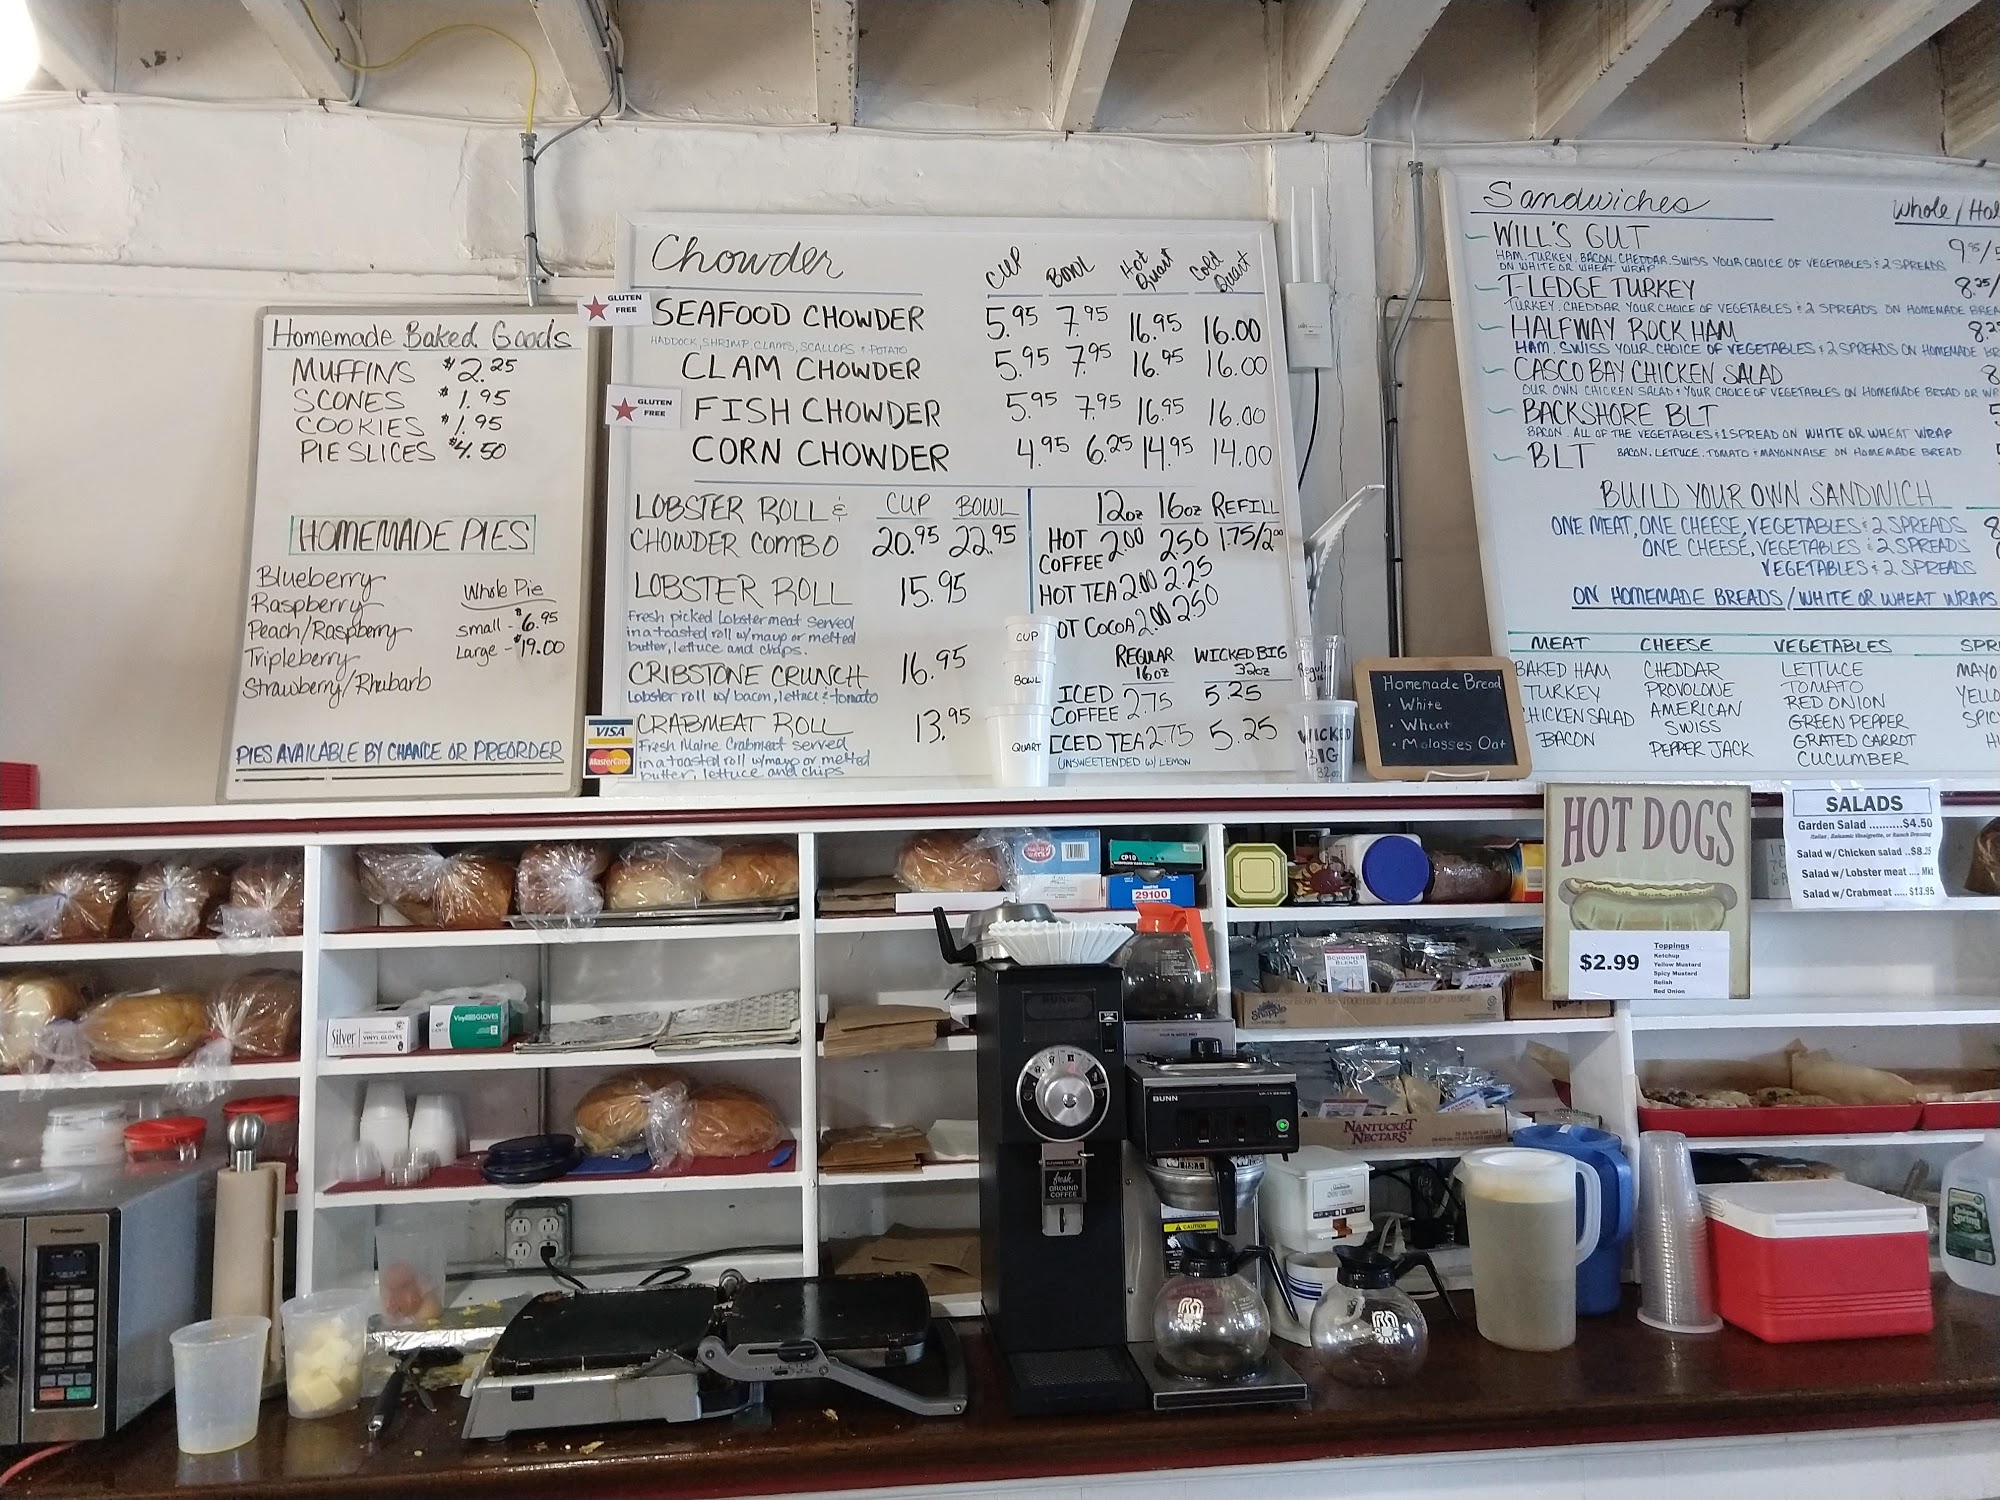 Homemade Baked Goods
MUFFINS $2.25
SCONES $1.95
COOKIES $1.95
PIE SLICES $4.50
HOMEMADE PIES
Blueberry
Raspberry
Peach/Raspberry
Tripleberry
Strawberry/Rhubarb
Whole Pie
small - $6.95
Large - $19.00
PIES AVAILABLE BY CHANCE OR PREORDER
GLUTEN
FREE
GLUTEN
FREE
Chowder CUP BOWL Hot Quart Cold Quart
SEAFOOD CHOWDER 5.95 7.95 16.95 16.00
HADDOCK, SHRIMP, CLAMS, SCALLOPS & POTATO
CLAM CHOWDER 5.95 7.95 16.95 16.00
FISH CHOWDER 5.95 7.95 16.95 16.00
CORN CHOWDER 4.95 6.25 14.95 14.00
LOBSTER ROLL & CUP BOWL
CHOWDER COMBO 20.95 22.95
LOBSTER ROLL 15.95
Fresh picked Lobster meat served
in a toasted roll w/mayo or melted
butter, lettuce and chips.
CRIBSTONE CRUNCH 16.95
Lobster roll w/ bacon, lettuce & tomato
CRABMEAT ROLL 13.95
Fresh Maine Crabmeat served
in a toasted roll w/mayo or melted
butter, lettuce and chips
VISA
MasterCard
12oz 16oz REFILL
HOT COFFEE 2.00 2.50 1.75/2.00
HOT TEA 2.00 2.25
OT COCOA 2.00 2.50
REGULAR 16oz WICKED BIG 32oz
ICED COFFEE 2.75 5.25
ICED TEA 2.75 5.25
UNSWEETENED W/ LEMON
CUP
BOWL
QUART
Regular
WICKED
BIG
32oz
Homemade Bread
• White
• Wheat
• Molasses Oat
Sandwiches Whole/Hal
WILL'S GUT 9.95/5
HAM. TURKEY. BACON. CHEDDAR. SWISS YOUR CHOICE OF VEGETABLES & 2 SPREADS
ON WHITE OR WHEAT WRAP
T-LEDGE TURKEY 8.25/
TURKEY. CHEDDAR YOUR CHOICE OF VEGETABLES & 2 SPREADS ON HOMEMADE BREA
HALFWAY ROCK HAM 8.25
HAM. SWISS YOUR CHOICE OF VEGETABLES & 2 SPREADS ON HOMEMADE BR
CASCO BAY CHICKEN SALAD 8
OUR OWN CHICKEN SALAD & YOUR CHOICE OF VEGETABLES ON HOMEMADE BREAD OR WR
BACKSHORE BLT 5
BACON. ALL OF THE VEGETABLES & 1 SPREAD ON WHITE OR WHEAT WRAP
BLT BACON. LETTUCE. TOMATO & MAYONNAISE ON HOMEMADE BREAD 5
BUILD YOUR OWN SANDWICH
ONE MEAT, ONE CHEESE, VEGETABLES & 2 SPREADS 8
ONE CHEESE, VEGETABLES & 2 SPREADS
VEGETABLES & 2 SPREADS
ON HOMEMADE BREADS/WHITE OR WHEAT WRAPS
MEAT CHEESE VEGETABLES SPR
BAKED HAM CHEDDAR LETTUCE MAYO
TURKEY PROVOLONE TOMATO YELLO
CHICKEN SALAD AMERICAN RED ONION SPIC
BACON SWISS GREEN PEPPER H
PEPPER JACK GRATED CARROT
CUCUMBER
HOT DOGS
$2.99
Toppings
Ketchup
Yellow Mustard
Spicy Mustard
Relish
Red Onion
SALADS
Garden Salad ..........$4.50
Italian, Balsamic Vinaigrette, or Ranch Dressing
Salad w/ Chicken salad ..$8.25
Salad w/ Lobster meat .... Mkt
Salad w/ Crabmeat ..... $13.95
CP10
29100
SCHOONER
BLEND
COLOMBIA
DECAF
Snapple
NANTUCKET
NECTARS
Silver
VINYL GLOVES
Vinyl GLOVES
BUNN
fresh
GROUND
COFFEE
BUNN
CAUTION
Panasonic
Spring